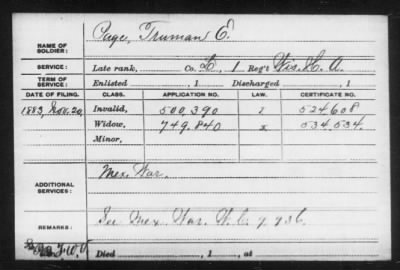 NAME OF SOLDIER: Page, Truman E.
SERVICE: Late rank, Co. L, 1 Reg't Wis. H. A.
TERM OF SERVICE: Enlisted , 1 Discharged , 1
DATE OF FILING. CLASS. APPLICATION NO. LAW. CERTIFICATE NO.
1883, Nov. 20, Invalid, 500,390 524608
Widow, 749.840 534.534.
Minor,
ADDITIONAL SERVICES: Mex. War.
REMARKS: See Mex War. W. C. 7736
Died , 1 , at